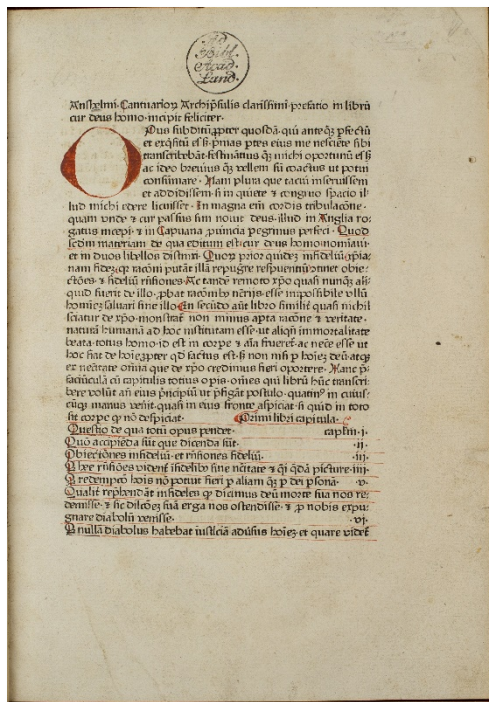 Ad
Bibl.
Acad.
Land.
Anshelmi Cantuarioꝝ Archip̄sulis clarissimi prefatio in librū
cur deus homo incipit feliciter.
Opus subditū ꝓpter quosdā qui anteqͣ ꝑfectū
et exq̄sitū esset p̄mas ꝑtes eius me nesciēte sibi
transcribebāt festināntius qͣ michi oportunū esset
ac ideo breuius qͣ vellem sū coactus ut potui
consūmare. Nam plura que tacui inseruissem
et addidissem si in quiete et congruo spacio il
lud michi edere licuisset. In magna em̄ cordis tribulacōne
quam unde et cur passus sim nouit deus illud in Anglia ro
gatus incepi et in Capuana ꝓuincia ꝑegrinus ꝑfeci. Quod
sedm̄ materiam de qua editum est cur deus homo nominaui
et in duos libellos distinxi. Quorꝝ prior quidez infideliū xp̄ia
nam fidez qꝛ racōni putāt illā repugnare respuentiū ↄtinet obie
ctōes et fideliū rn̄siones Ac tandē remoto xp̄o quasi nunqͣ ali
quid fuerit de illo ꝓbat racōnibꝫ nec̄rijs esse impossibile ullū
hoīez saluari sine illo In secūdo aūt libro similit̄ quasi nichil
sciatur de xp̄o monstrat̄ non minus apta racōne et veritate
naturā humanā ad hoc institutam esse ut aliqn̄ immortalitate
beata totus homo id est in corpe et aīa frueret̄ ac necē esse ut
hoc fiat de hoīe ꝓpter qd̄ factus est sꝫ non nisi ꝑ hoīez deū atqꝫ
ex nec̄itate oīnia que de xp̄o credimus fieri oportere. Hanc p̄
faciūculā cū capitulis totius opis om̄es qui librū hūc transcri
bere volūt an̄ eius p̄ncipiū ut p̄figāt postulo quatinꝰ in cuius
cūqꝫ manus venit quasi in eius fronte aspiciat si quid in toto
sit corpe qd̄ nō despiciat. Primi libri capitula.
Questio de qua totū opus pendet. caplm̄ .i.
Quō accipiēda sūt que dicenda sūt. .ii.
Obiectiōnes infideliū et rn̄siones fideliū. .iii.
Q hee rn̄siōes videnꝶ īfidelibꝫ sine nec̄itate et qi qdā picture .iiii.
Q redempcō hoīs nō potuit fieri ꝑ aliam qͣ ꝑ dei ꝑsonā. .v.
Qualit̄ rep̄hendāt infideles qd̄ dicimus deū morte sua nos re
demisse et sic dilcōez suā erga nos ostendisse et ꝓ nobis expu
gnare diabolū venisse. .vi.
Q nullā diabolus habebat iusticiā aduīsus hoīez et quare videt̄